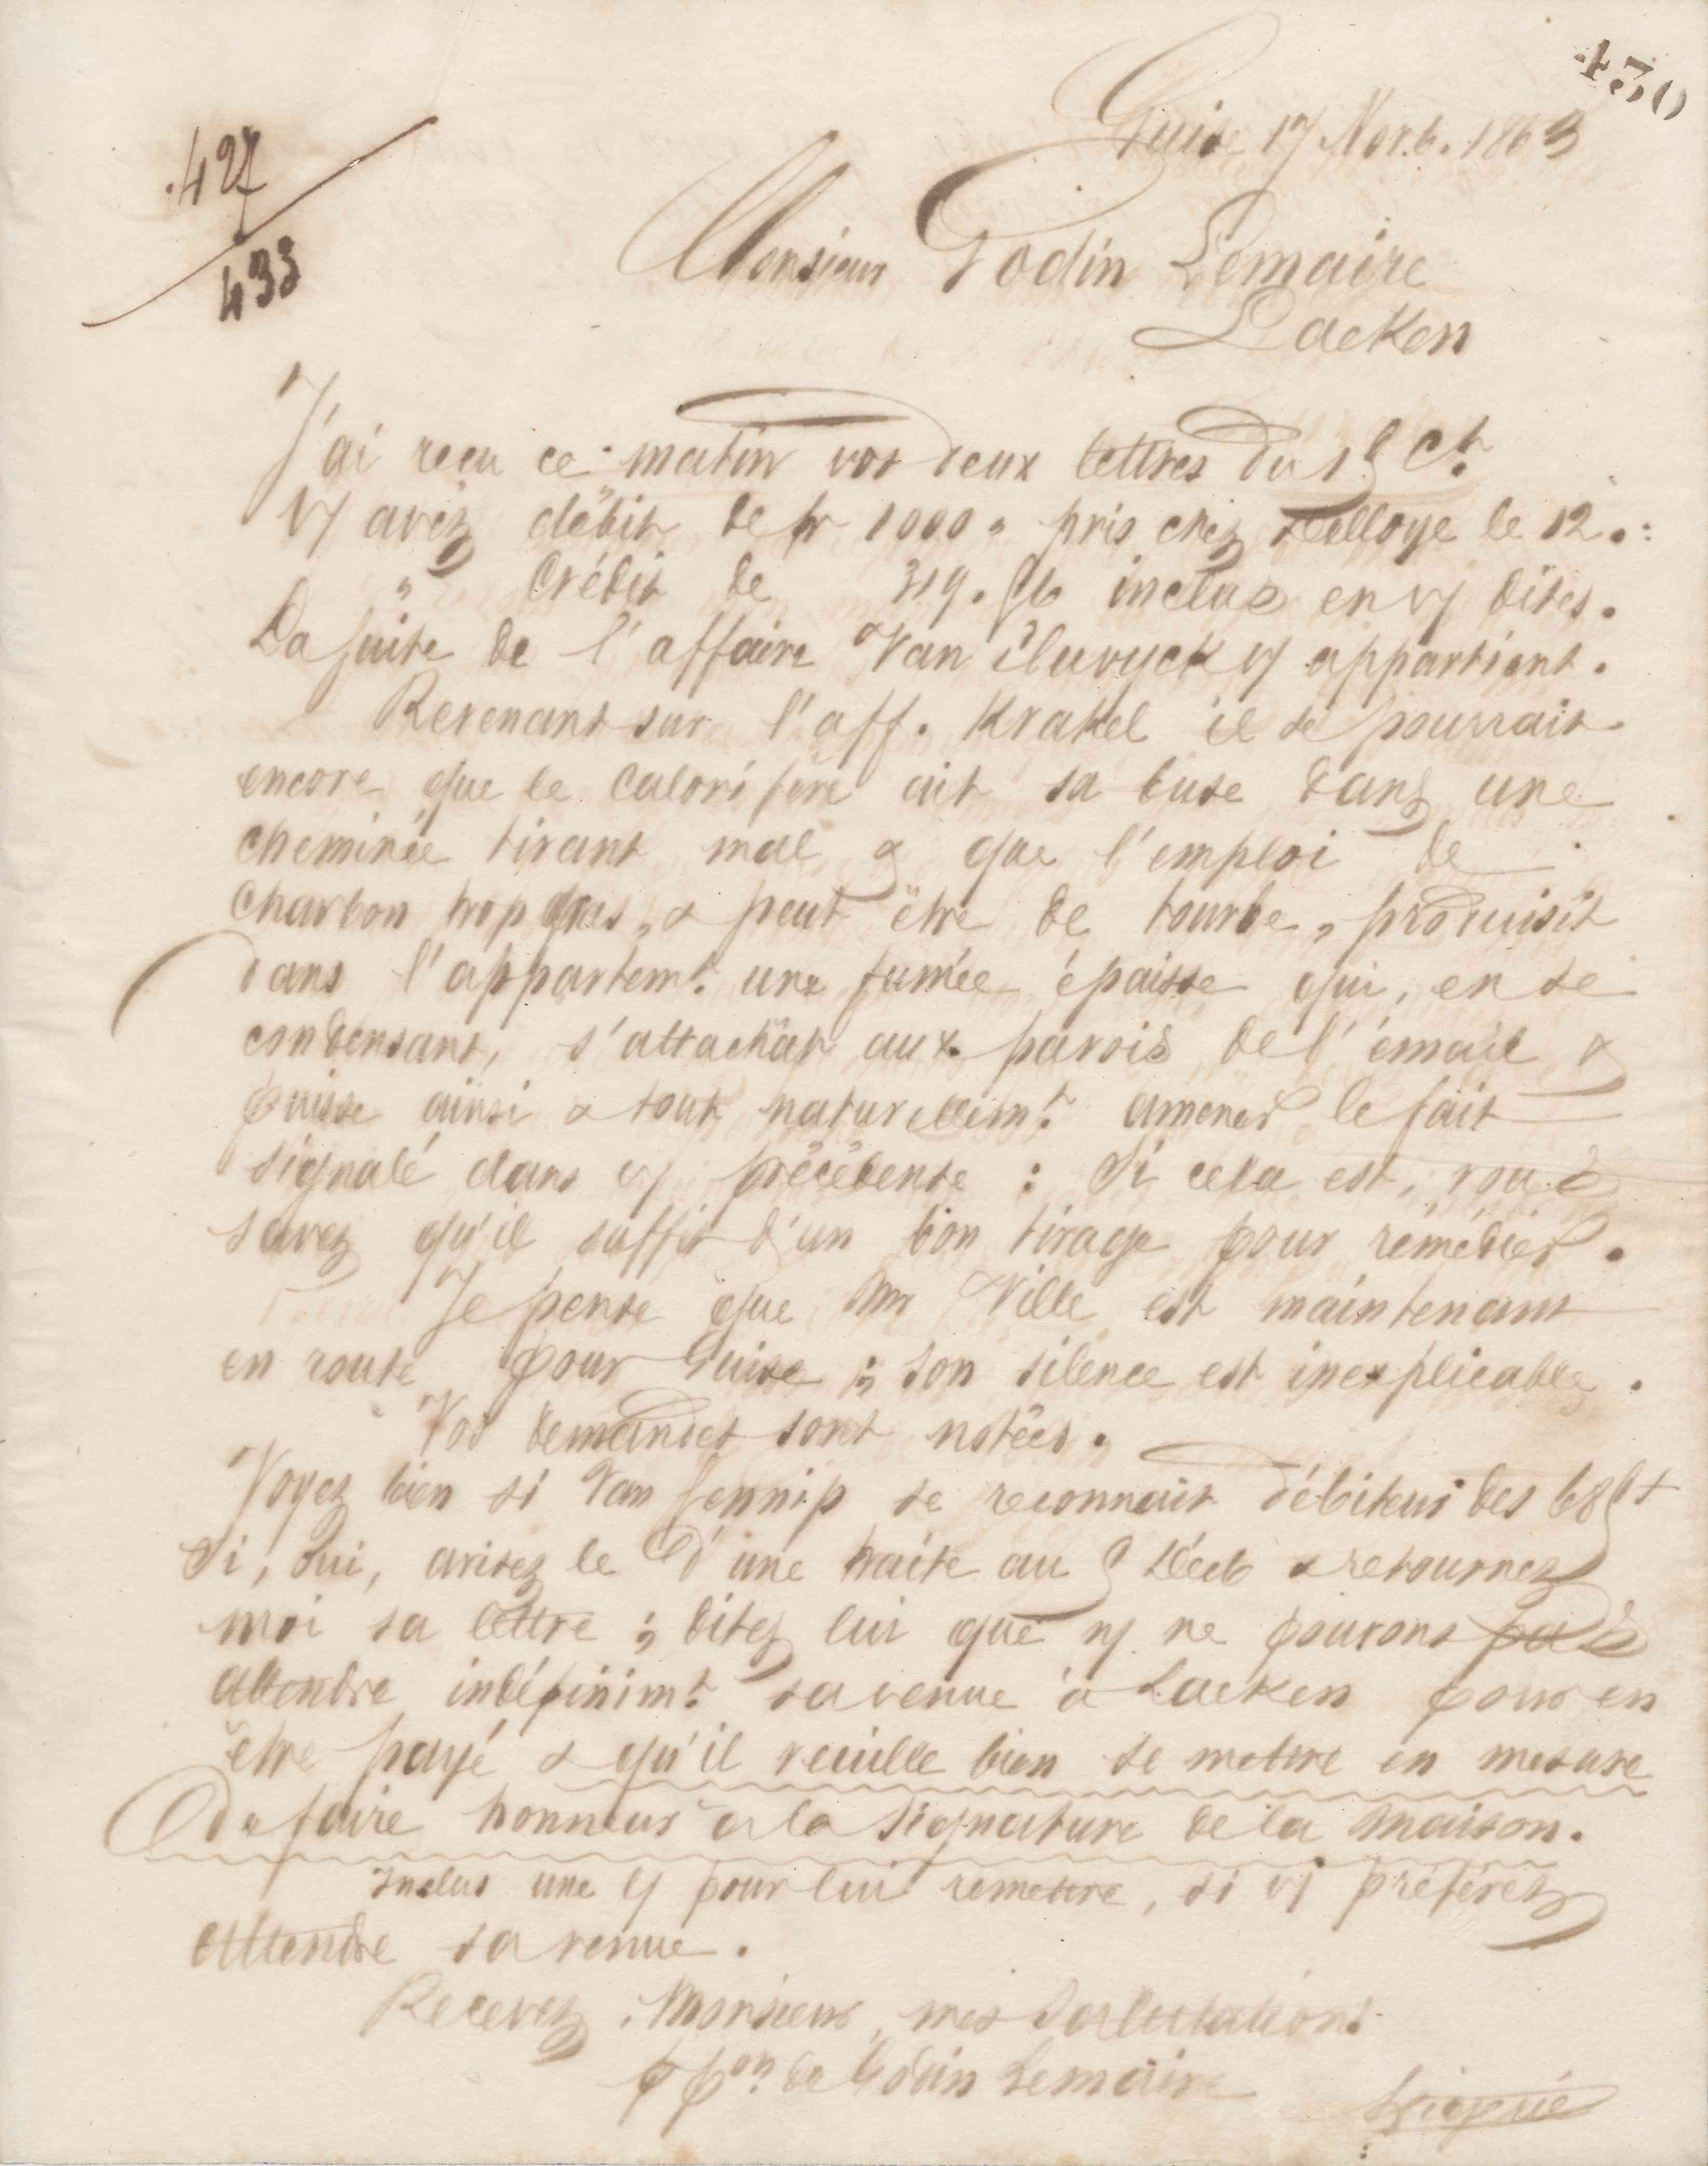 430
427
433
Guise 17 Nov.b. 1863
Monsieur Godin Lemaire
Laeken
J'ai reçu ce matin vos deux lettres du 15 Ct.
V/ avez débit de fr 1000 " pris chez Delloye le 12 . :
" Crédit de 319. 56 inclus en v/ dites.
La suite de l'affaire Van v/ appartient.
Revenant sur l'aff. Krakel il se pourrait
encore que le calorifère ait sa buse dans une
cheminée tirant mal & que l'emploi de
charbon trop gras, & peut être de tourbe, produisit
dans l'appartemt. une fumée épaisse qui, en se
condensant, s'attachât aux parois de l'émail &
puisse ainsi & tout naturellemt. amener le fait
signalé dans v/ précédente : Si cela est, vous
savez qu'il suffit d'un bon tirage pour remédier.
Je pense que Mr Ville est maintenant
en route pour Guise ; son silence est inexplicable.
Vos demandes sont notées.
Voyez bien si Van Gennip se reconnait débiteur des
Si, oui, avisez le d'une traite au 5 Décb & retournez
moi sa lettre ; dites lui que n/ ne pouvons pas
attendre indéfinimt. sa venue à Laeken pour en
être payé & qu'il veuille bien se mettre en mesure
de faire honneur à la signature de la maison.
Inclus une l/ pour lui remettre, si v/ préférez
attendre sa venue.
Recevez, Monsieur, mes salutations
p pon. de Godin Lemaire